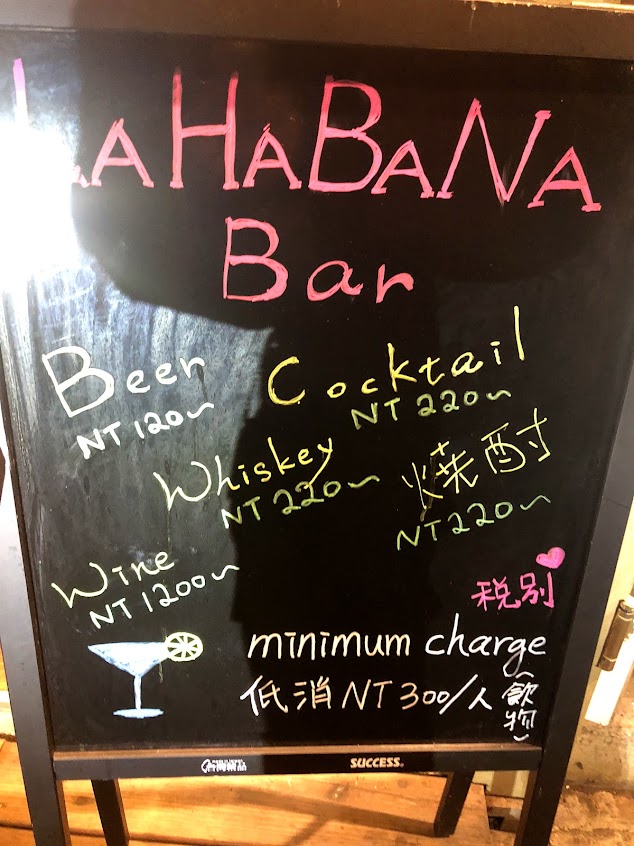 LAHABANA
Bar
Beer
NT 120~
Cocktail
NT 220~
Whiskey
NT 220~
焼酎
NT 220~
Wine
NT 1200~
税別
minimum charge
低消 NT 300/人(飲物)
SUCCESS